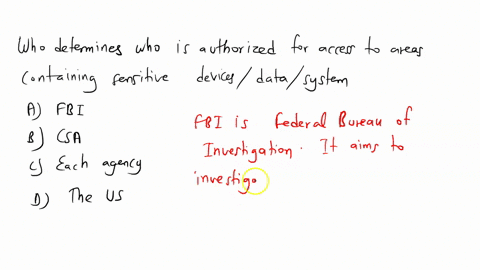 Who determines who is authorized for access to areas
containing sensitive devices/data/system
A) FBI
B) CSA
C) Each agency
D) The US
FBI is Federal Bureau of
Investigation. It aims to
investiga